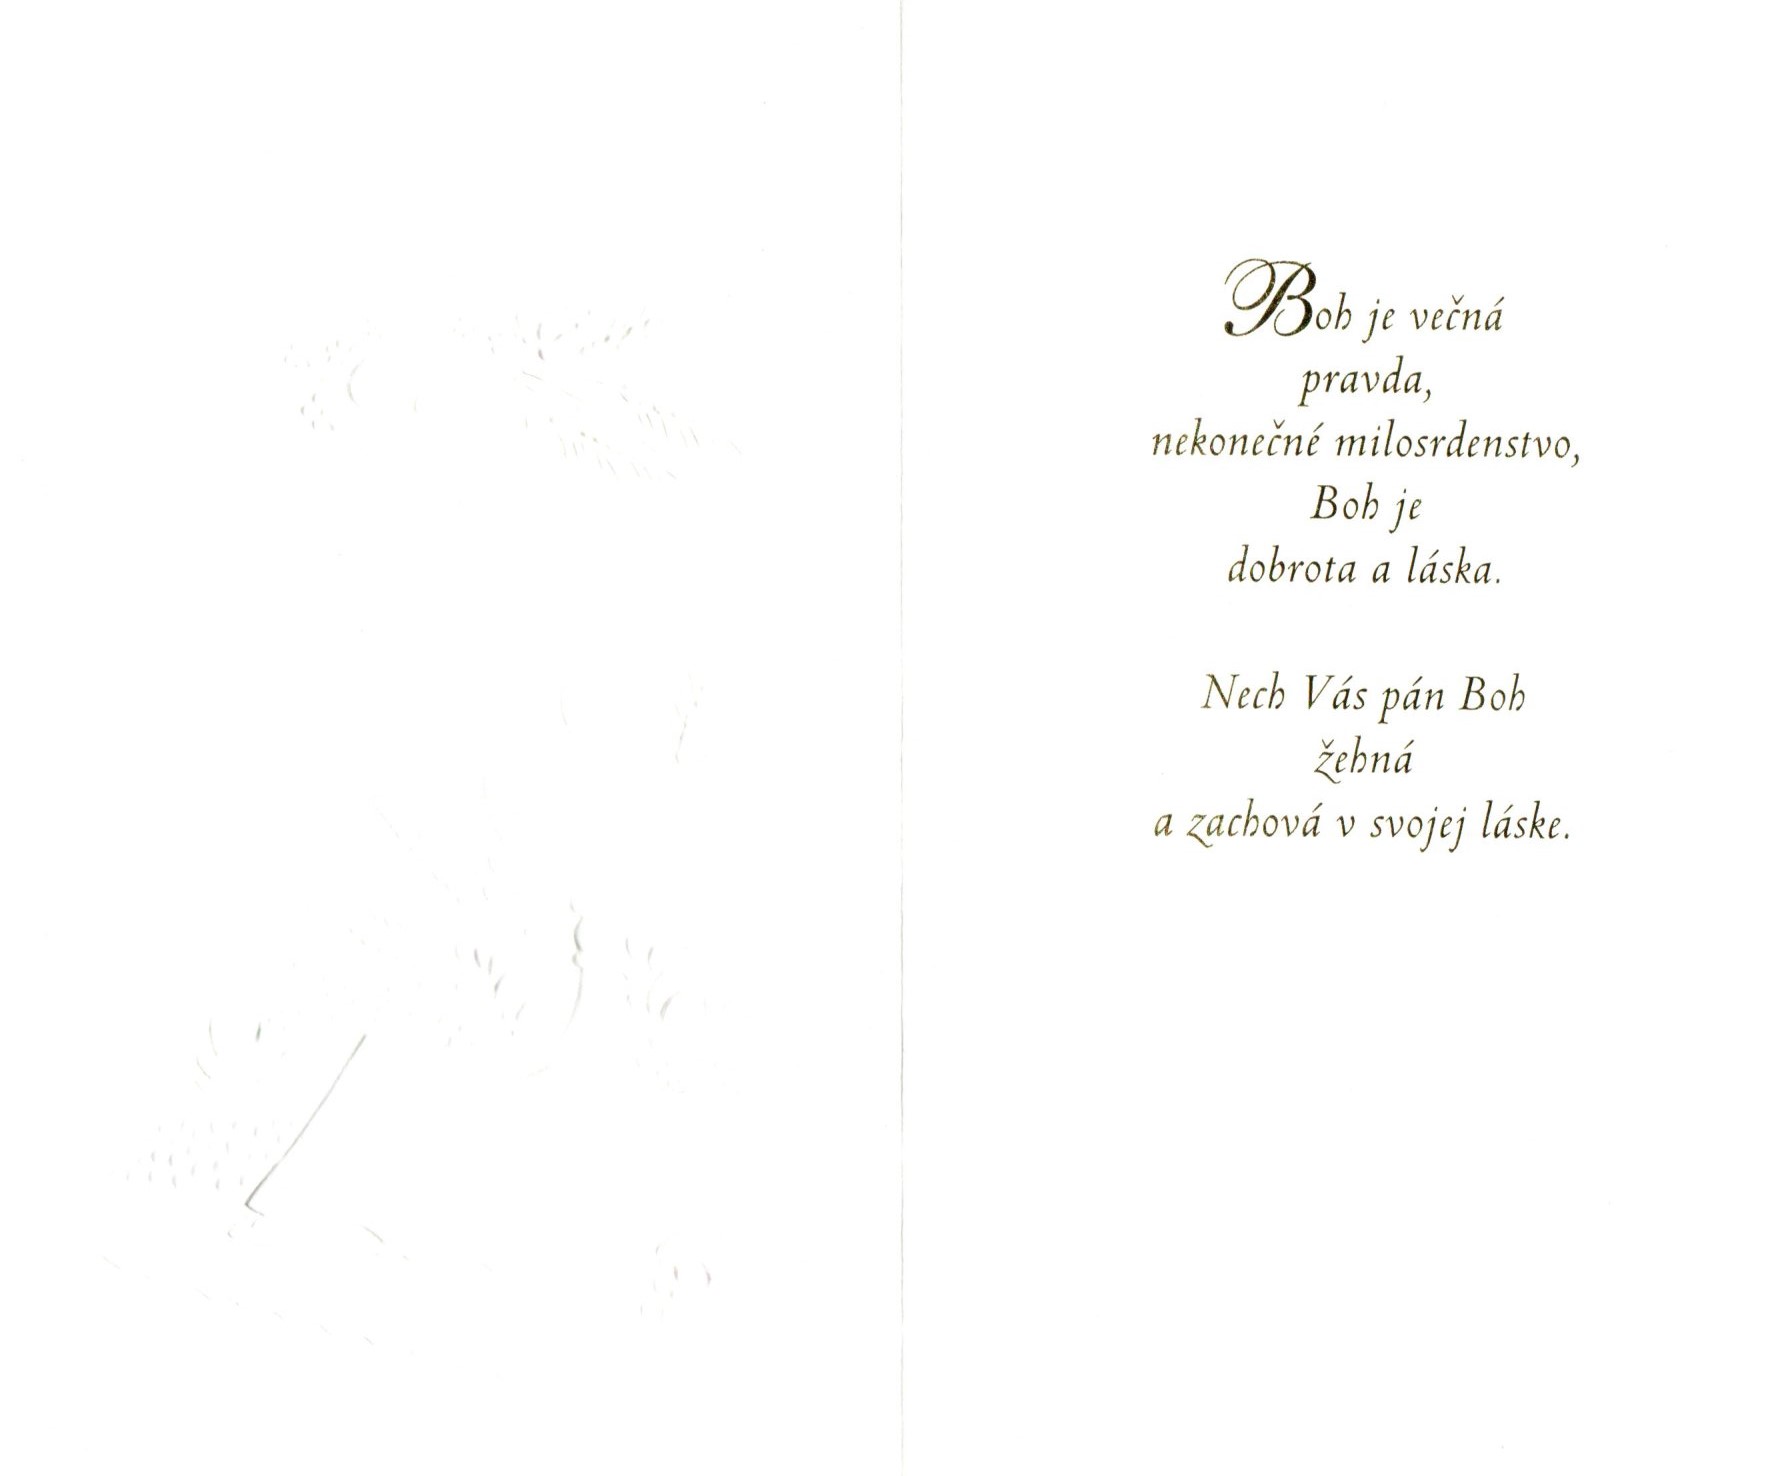 Boh je večná
pravda,
nekonečné milosrdenstvo,
Boh je
dobrota a láska.
Nech Vás pán Boh
žehná
a zachová v svojej láske.